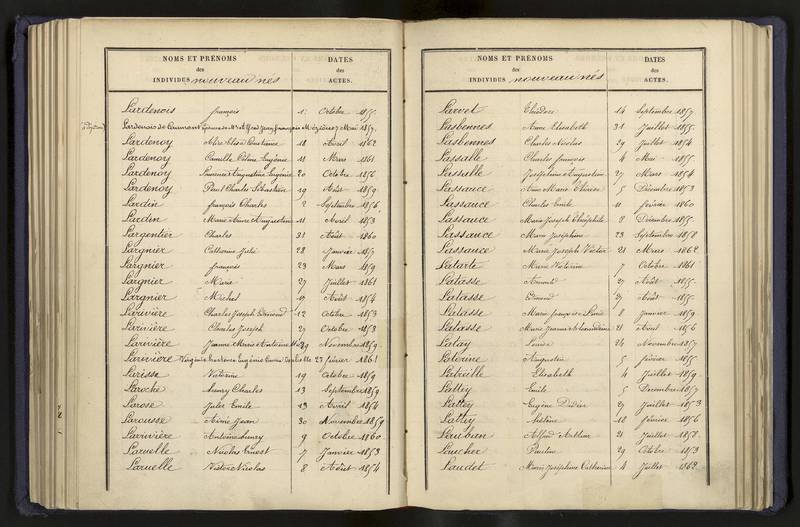 NOMS ET PRÉNOMS
des
INDIVIDUS nouveau nés
DATES
des
ACTES.
Lardenois françois 1 Octobre 1855
Lardenois de Caumont 7 Mai 1857
Lardenoy Constance 18 Avril 1862
Lardenoy Camille Eugénie 11 Mars 1861
Lardenoy Augustine Eugénie 20 Octobre 1856
Lardenoy Paul Charles Sébastien 19 Août 1859
Lardin françois Charles 2 Septembre 1856
Lardin Marie Anne Augustine 11 Avril 1853
Largentier Charles 31 Août 1860
Largnier Catherine Julie 28 Janvier 1857
Largnier françois 23 Mars 1859
Largnier Marie 27 Juillet 1861
Largnier Michel 19 Août 1854
Larivière Charles Joseph Edmond 12 Octobre 1853
Larivière Charles Joseph 27 Octobre 1853
Larivière Jeanne Marie Antoinette 29 Novembre 1859
Larivière Virginie Eugénie 23 février 1861
Larisse Victorine 19 Octobre 1859
Laroche Henry Charles 13 Septembre 1859
Larose Jules Emile 13 Avril 1854
Larousse Jean 30 Novembre 1859
Larivière Antoine henry 9 Octobre 1860
Laruelle Nicolas Ernest 7 Janvier 1853
Laruelle Victor Nicolas 8 Août 1854
NOMS ET PRÉNOMS
des
INDIVIDUS nouveau nés
DATES
des
ACTES.
Larvet Théodore 14 Septembre 1857
Lasbennes Anne Elisabeth 31 Juillet 1855
Lasbennes Charles Nicolas 29 Juillet 1854
Lassalle Charles françois 4 Mai 1855
Lassalle Joséphine Augustine 27 Mars 1854
Lassauce Anne Marie Thérèse 5 Décembre 1853
Lassauce Charles Emile 11 février 1860
Lassauce Marie Joseph Théophile 8 Décembre 1855
Lassauce Marie Joséphine 23 Septembre 1858
Lassauce Marie Joseph Victor 21 Mars 1862
Latarte Marie Victorine 7 Octobre 1861
Latasse Armand 27 Août 1855
Latasse Edmond 27 Août 1855
Latasse Marie françoise 8 Janvier 1859
Latasse Marie Jeanne Alexandrine 21 Avril 1856
Latay Louise 24 Novembre 1857
Laterine Augustin 5 février 1855
Latreille Elisabeth 4 Juillet 1859
Lattey Emile 5 Décembre 1857
Lattey Eugène Didier 27 Juillet 1853
Lattey 18 février 1856
Lauben Alfred Arthur 21 Juillet 1858
Laucher Pauline 29 Octobre 1853
Laudet Marie Joséphine Catherine 4 Juillet 1862